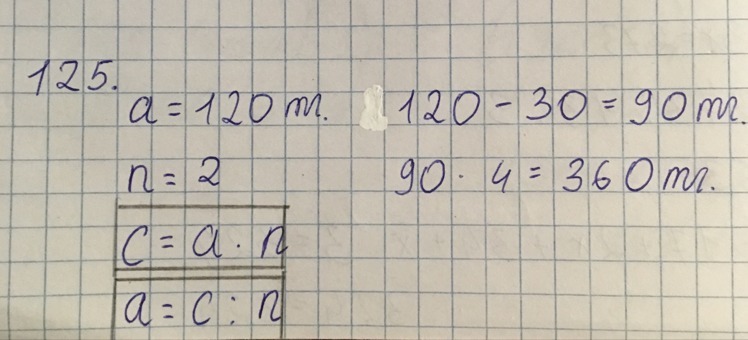 125.
a = 120 т.
n = 2
c = a · n
a = c : n
120 - 30 = 90 т.
90 · 4 = 360 т.